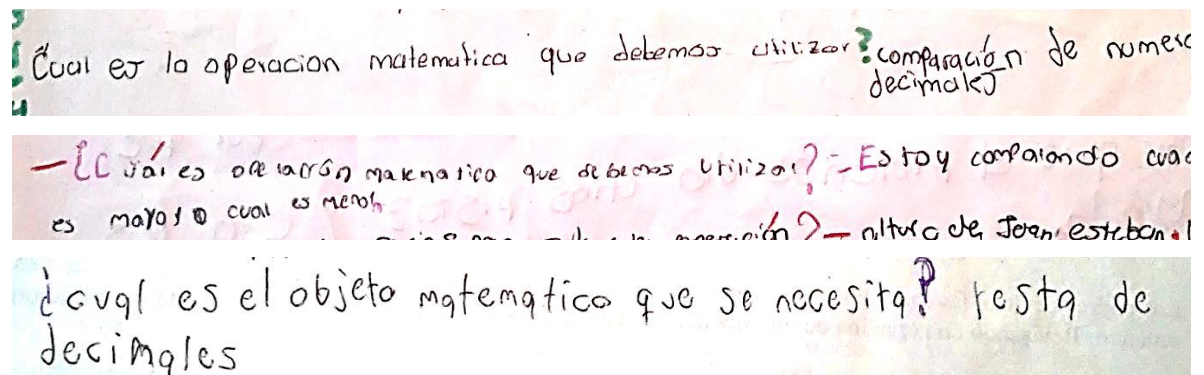 ¿Cual es la operacion matematica que debemos utilizar? comparación de numero
decimales
-¿Cuál es operación matematica que debemos utilizar? - Estoy comparando cual
es mayor o cual es menor
operación? - altura de Joan esteban.
¿cual es el objeto matematico que se necesita? resta de
decimales